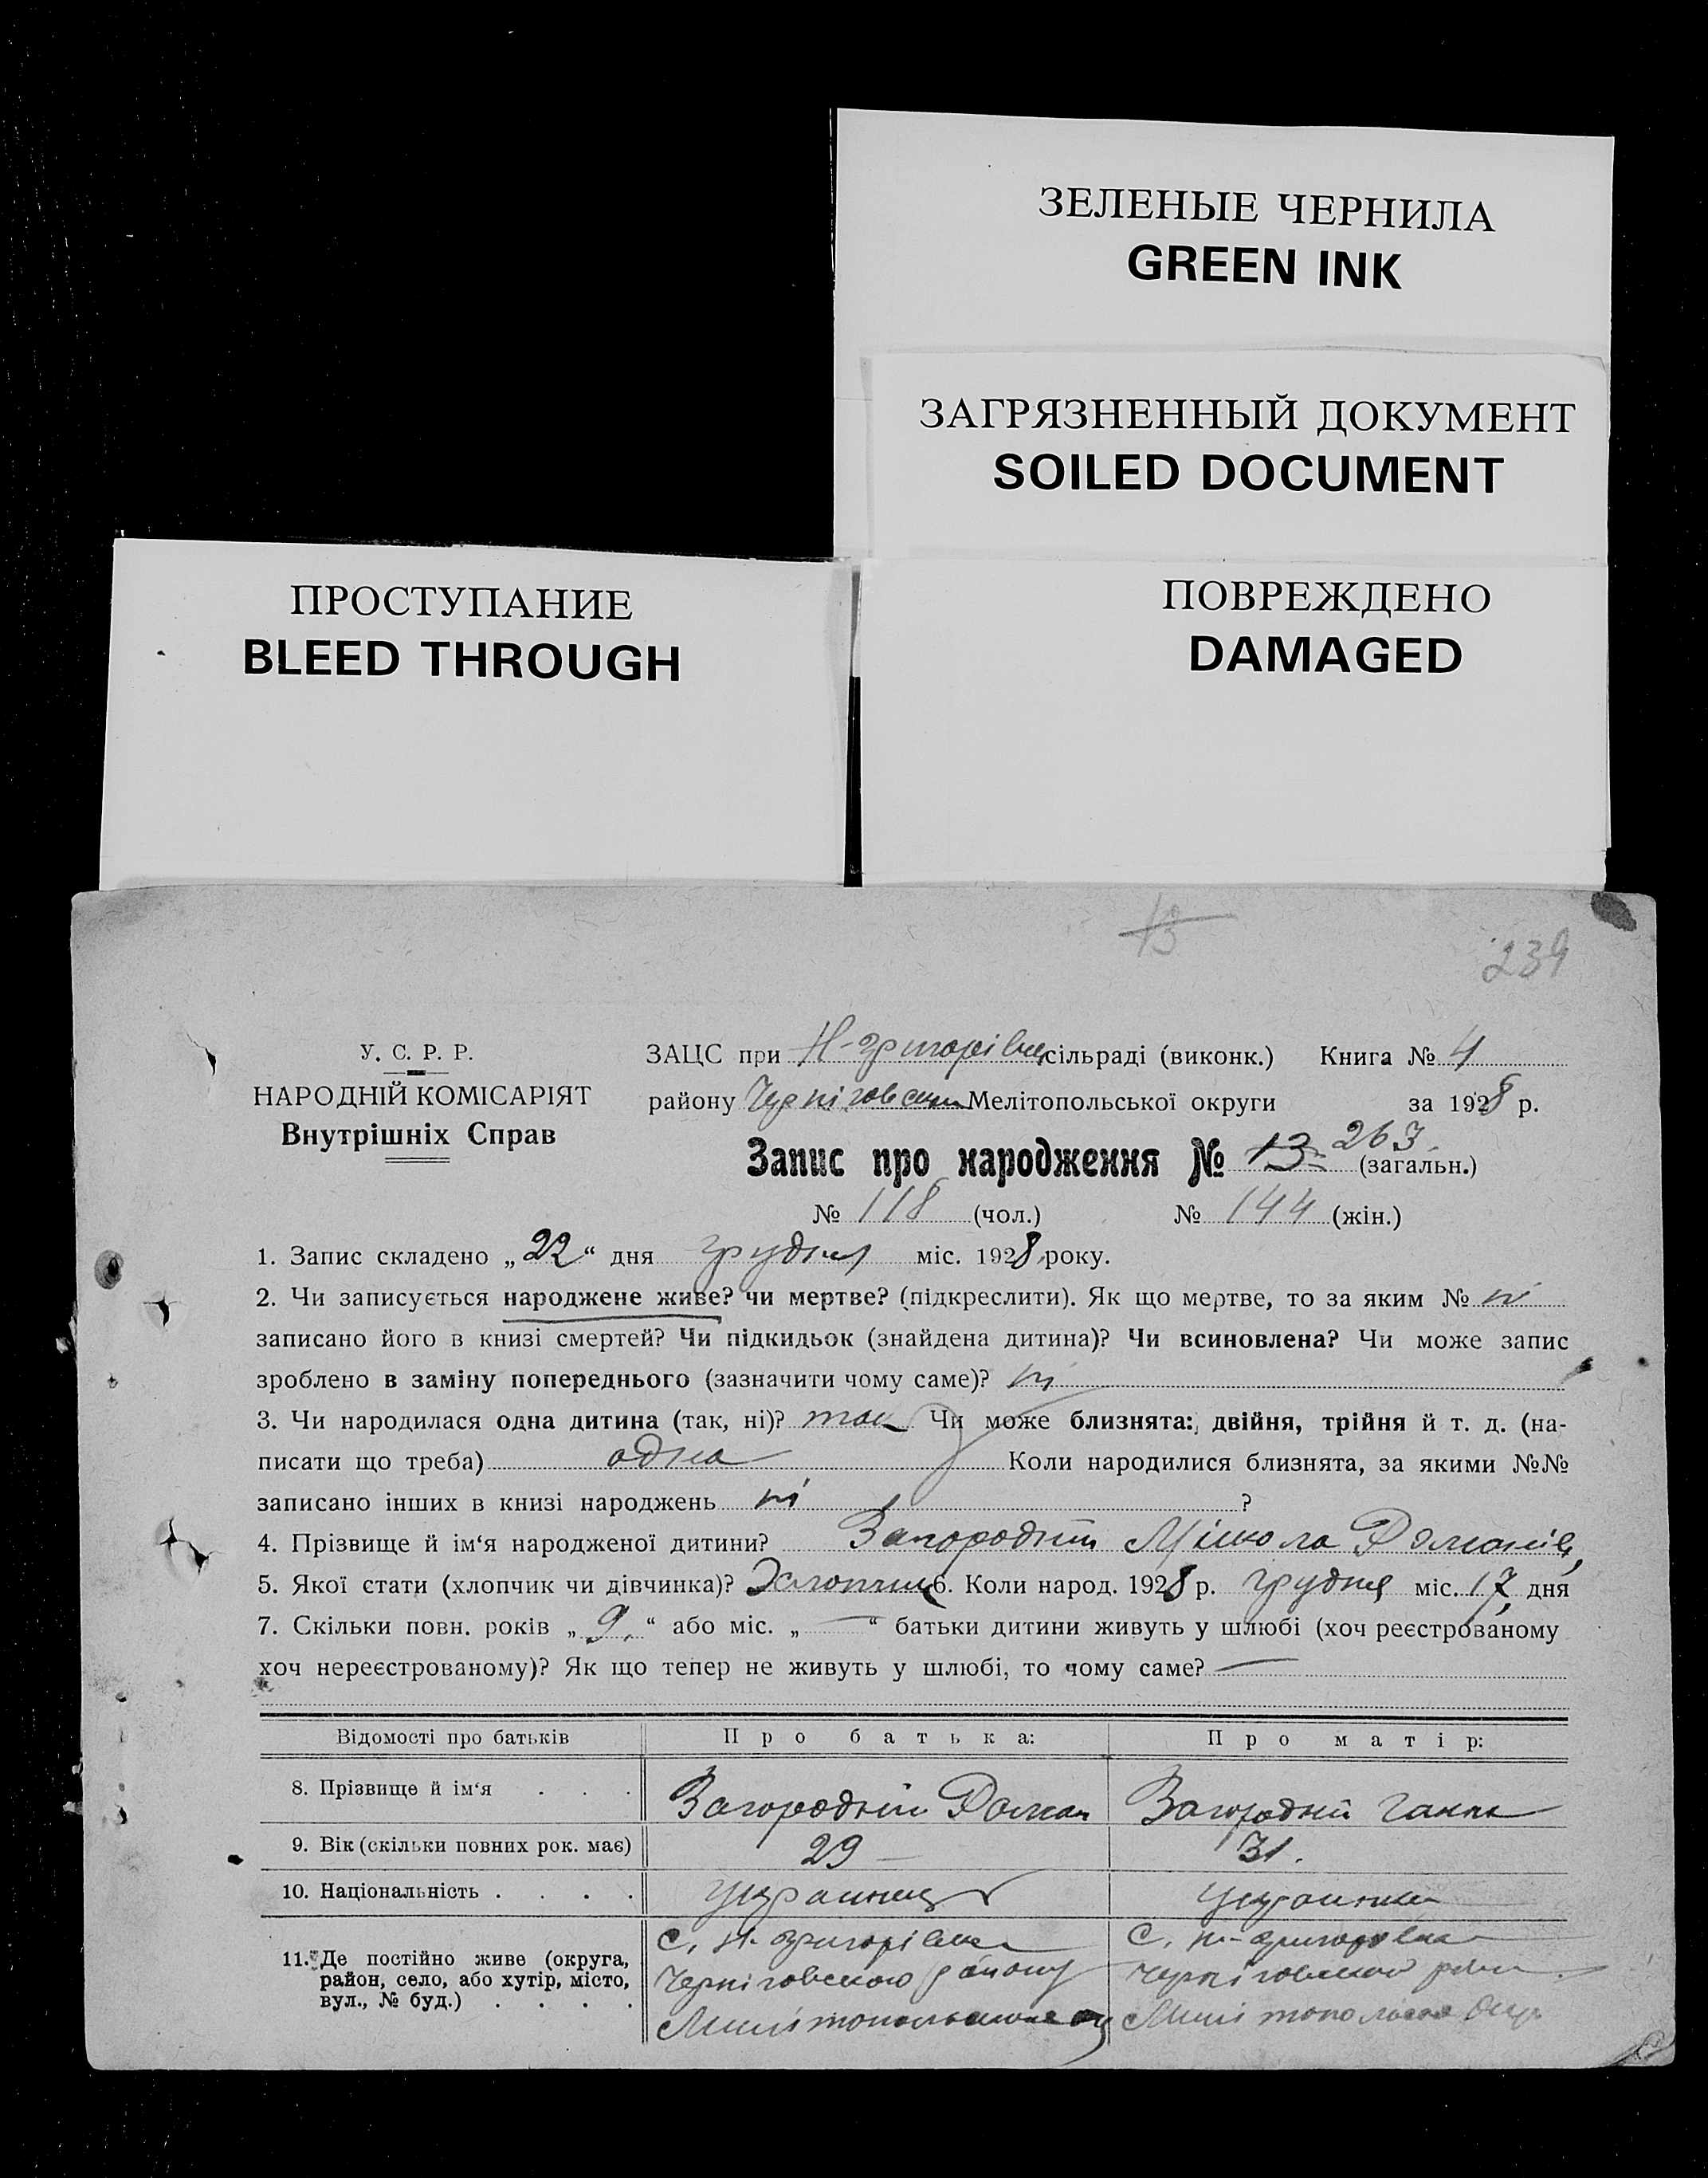 ЗЕЛЕНЫЕ ЧЕРНИЛА
GREEN INK
ЗАГРЯЗНЕННЫЙ ДОКУМЕНТ
SOILED DOCUMENT
ПРОСТУПАНИЕ
BLEED THROUGH
ПОВРЕЖДЕНО
DAMAGED
13
239
У. С. Р. Р.
НАРОДНІЙ КОМІСАРІЯТ
Внутрішніх Справ
ЗАЦС при Н-григорівц сільраді (виконк.) Книга № 4
району Мелітопольської округи за 1928 р.
Запис про народження № 13 263 (загальн.)
№ 118 (чол.) № 144 (жін.)
1. Запис складено „22“ дня грудня міс. 1928 року.
2. Чи записується народжене живе? чи мертве? (підкреслити). Як що мертве, то за яким № ні
записано його в книзі смертей? Чи підкидьок (знайдена дитина)? Чи всиновлена? Чи може запис
зроблено в заміну попереднього (зазначити чому саме)? ні
3. Чи народилася одна дитина (так, ні)? так Чи може близнята: двійня, трійня й т. д. (на-
писати що треба) одна Коли народилися близнята, за якими №№
записано інших в книзі народжень ні ?
4. Прізвище й ім‘я народженої дитини? Загородній Мікола Романів
5. Якої стати (хлопчик чи дівчинка)? Хлопчик 6. Коли народ. 1928 р. грудня міс. 17 дня
7. Скільки повн. років „9“ або міс. „—“ батьки дитини живуть у шлюбі (хоч реєстрованому
хоч нереєстрованому)? Як що тепер не живуть у шлюбі, то чому саме? —
Відомості про батьків Про батька: Про матір:
8. Прізвище й ім‘я . . . Загородній Роман Загородній Ганна
9. Вік (скільки повних рок. має) 29 31.
10. Національність . . . . українец українка
11. Де постійно живе (округа,
район, село, або хутір, місто,
вул., № буд.) . . . .
с. Н-григорівка
Черніговского району
с. Н-григорівка
Черніговского